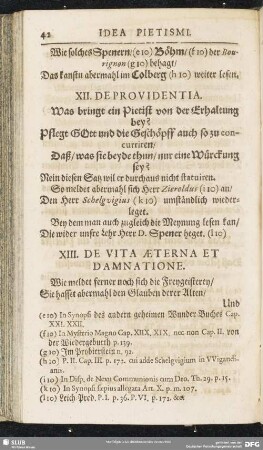 42 IDEA PIETISMI.
Wie solches Spenern/ (e 10) Böhm/ (f 10) der Bou-
rignon (g 10) behagt/
Das kanstu abermahl im Colberg (h 10) weiter lesen.
XII. DE PROVIDENTIA.
Was bringt ein Pietist von der Erhaltung
bey?
Pflegt GOtt und die Geschöpff auch so zu con-
curriren/
Daß/ was sie beyde thun/ nur eine Würckung
sey?
Nein diesen Satz wil er durchaus nicht statuiren.
So meldet abermahl sich Herr Zieroldus (i 10) an/
Den Herr Schelgvigius (k 10) umständlich wieder-
leget.
Bey dem man auch zugleich die Meynung lesen kan/
Die wider unsre Lehr Herr D. Spener heget. (l 10)
XIII. DE VITA ÆTERNA ET
DAMNATIONE.
Wie meldet ferner noch sich die Freygeisterey/
Sie hasset abermahl den Glauben derer Alten/
Und
(e 10) In Synopsi des andern geheimen Wunder-Buches Cap.
XXI. XXII.
(f 10) In Mysterio Magno Cap. XIIX, XIX, nec non Cap. II. von
der Wiedergeburth p. 139.
(g 10) Im
n. 92.
(h 10) P. II. Cap. III. p. 172. cui adde Schelgvigium in VVigandi-
anis.
(i 10) In Disp. de Nexu Communionis cum Deo. Th. 29. p. 15.
(k 10) In Synopsi sæpius allegata Art. X. p. m. 107.
(l 10) Leich Pred. P. I. p. 36. P. VI. p. 172. &c
SLUB
DFG